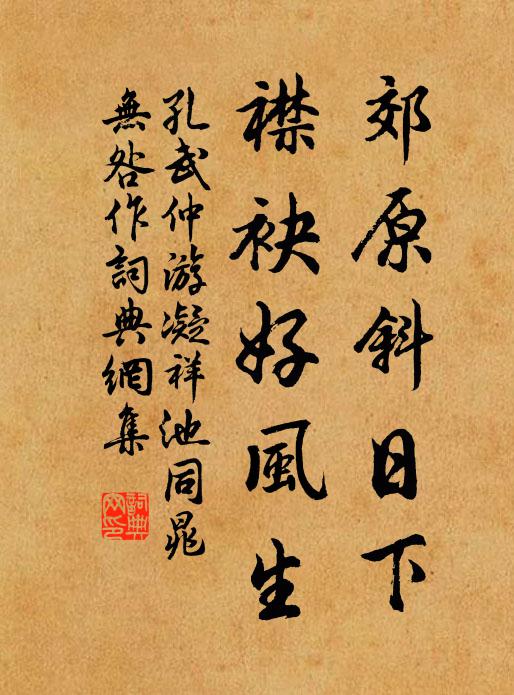 郊原斜日下
襟袂好風生
孔武仲游凝祥池同晁
無咎作詞典網集
詞典網印